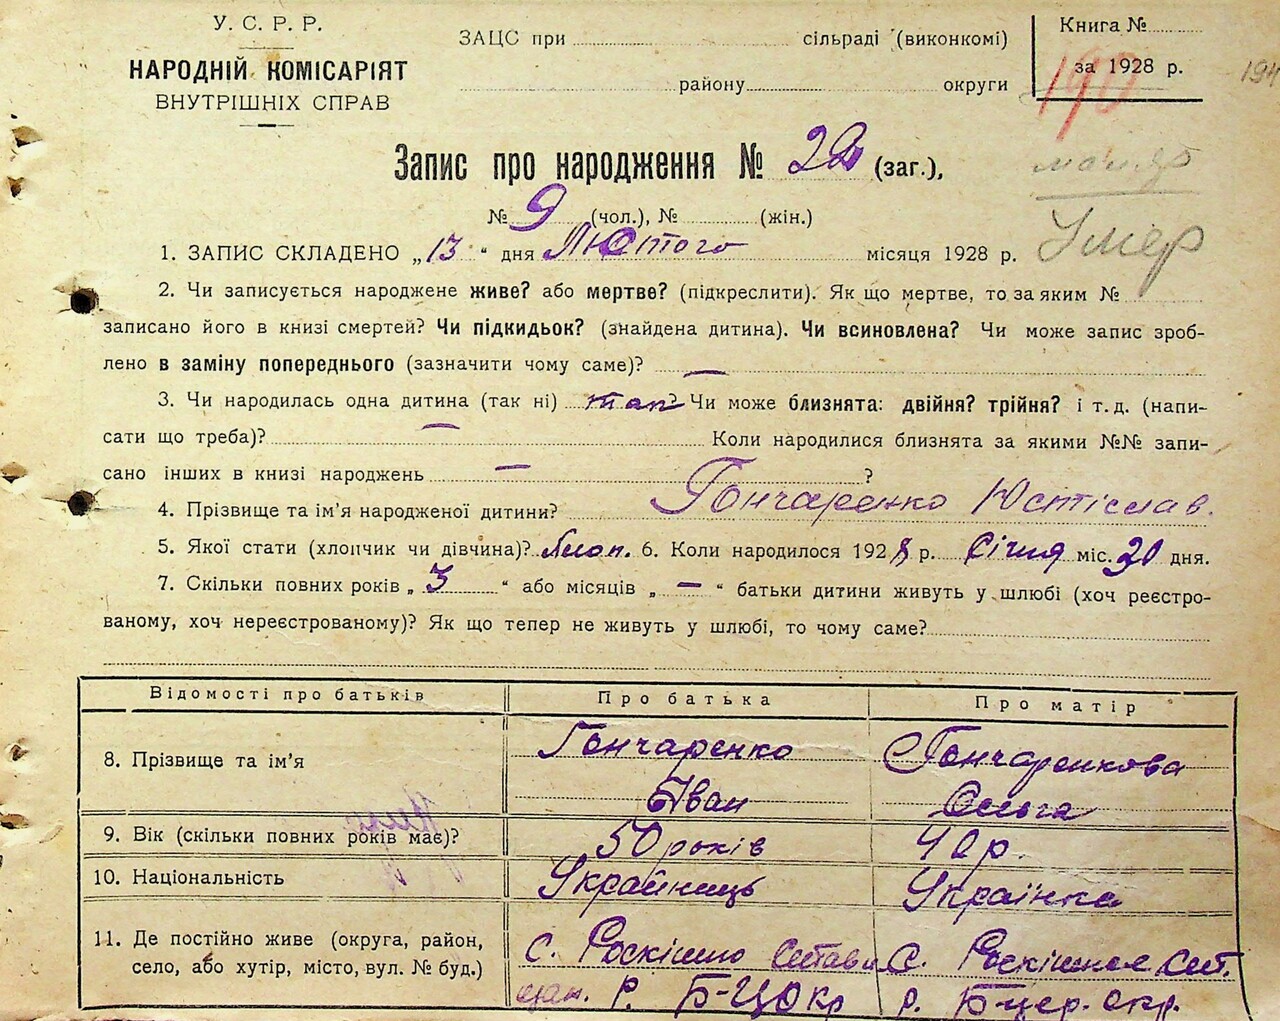 У. С. Р. Р.
НАРОДНІЙ КОМІСАРІЯТ
ВНУТРІШНІХ СПРАВ
ЗАЦС при сільраді (виконкомі)
району округи
Книга №
за 1928 р.
190
194
Запис про народження № 22 (заг.),
№ 9 (чол.), № (жін.)
Умер
1. ЗАПИС СКЛАДЕНО „13" дня Лютого місяця 1928 р.
2. Чи записується народжене живе? або мертве? (підкреслити). Як що мертве, то за яким №
записано його в книзі смертей? Чи підкидьок? (знайдена дитина). Чи всиновлена? Чи може запис зроб-
лено в заміну попереднього (зазначити чому саме)? —
3. Чи народилась одна дитина (так ні) так? Чи може близнята: двійня? трійня? і т. д. (напи-
сати що треба)? — Коли народилися близнята за якими №№ запи-
сано інших в книзі народжень — ?
4. Прізвище та ім'я народженої дитини? Гончаренко Юстіслав.
5. Якої стати (хлопчик чи дівчина)? хлоп. 6. Коли народилося 1928 р. Січня міс. 30 дня.
7. Скільки повних років „ 3 " або місяців „ — " батьки дитини живуть у шлюбі (хоч реєстро-
ваному, хоч нереєстрованому)? Як що тепер не живуть у шлюбі, то чому саме?
Відомості про батьків Про батька Про матір
8. Прізвище та ім'я Гончаренко Іван Гончаренкова Ольга
9. Вік (скільки повних років має)? 50 років 40 р.
10. Національність Українець Українка
11. Де постійно живе (округа, район, С. Роскішно С. Роскішная
село, або хутір, місто, вул. № буд.) р. Б-Ц Окр р. Б-цер. окр.